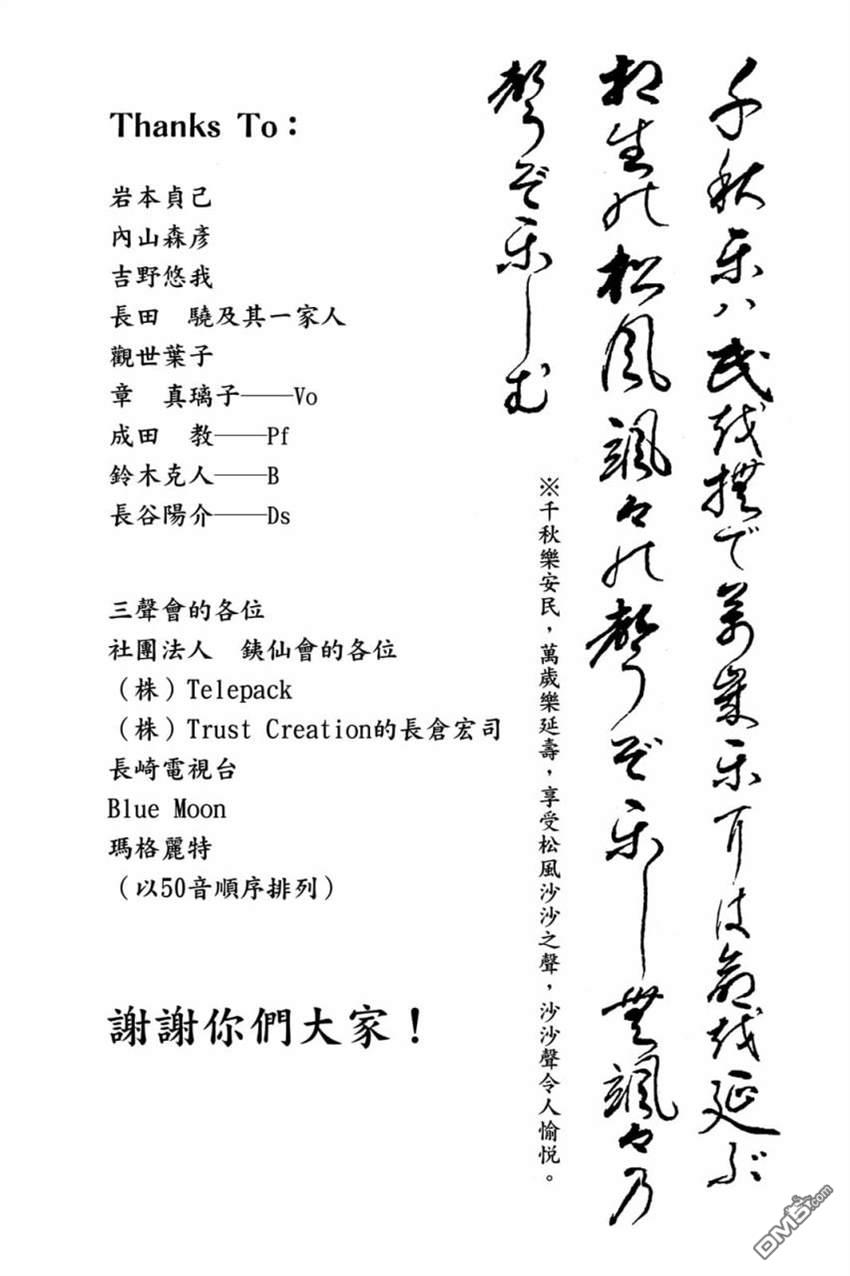 千秋乐ハ民越撫で萬歳乐耳は命越延ぶ
相生能松風颯々能聲ぞ乐し無颯々乃
聲ぞ乐しむ
※千秋樂安民，萬歲樂延壽，享受松風沙沙之聲，沙沙聲令人愉悅。
Thanks To：
岩本貞己
內山森彥
吉野悠我
長田　驍及其一家人
觀世葉子
章　真璃子──Vo
成田　教──Pf
鈴木克人──B
長谷陽介──Ds
三聲會的各位
社團法人　銕仙會的各位
（株）Telepack
（株）Trust Creation的長倉宏司
長崎電視台
Blue Moon
瑪格麗特
（以50音順序排列）
謝謝你們大家！
DM5.com